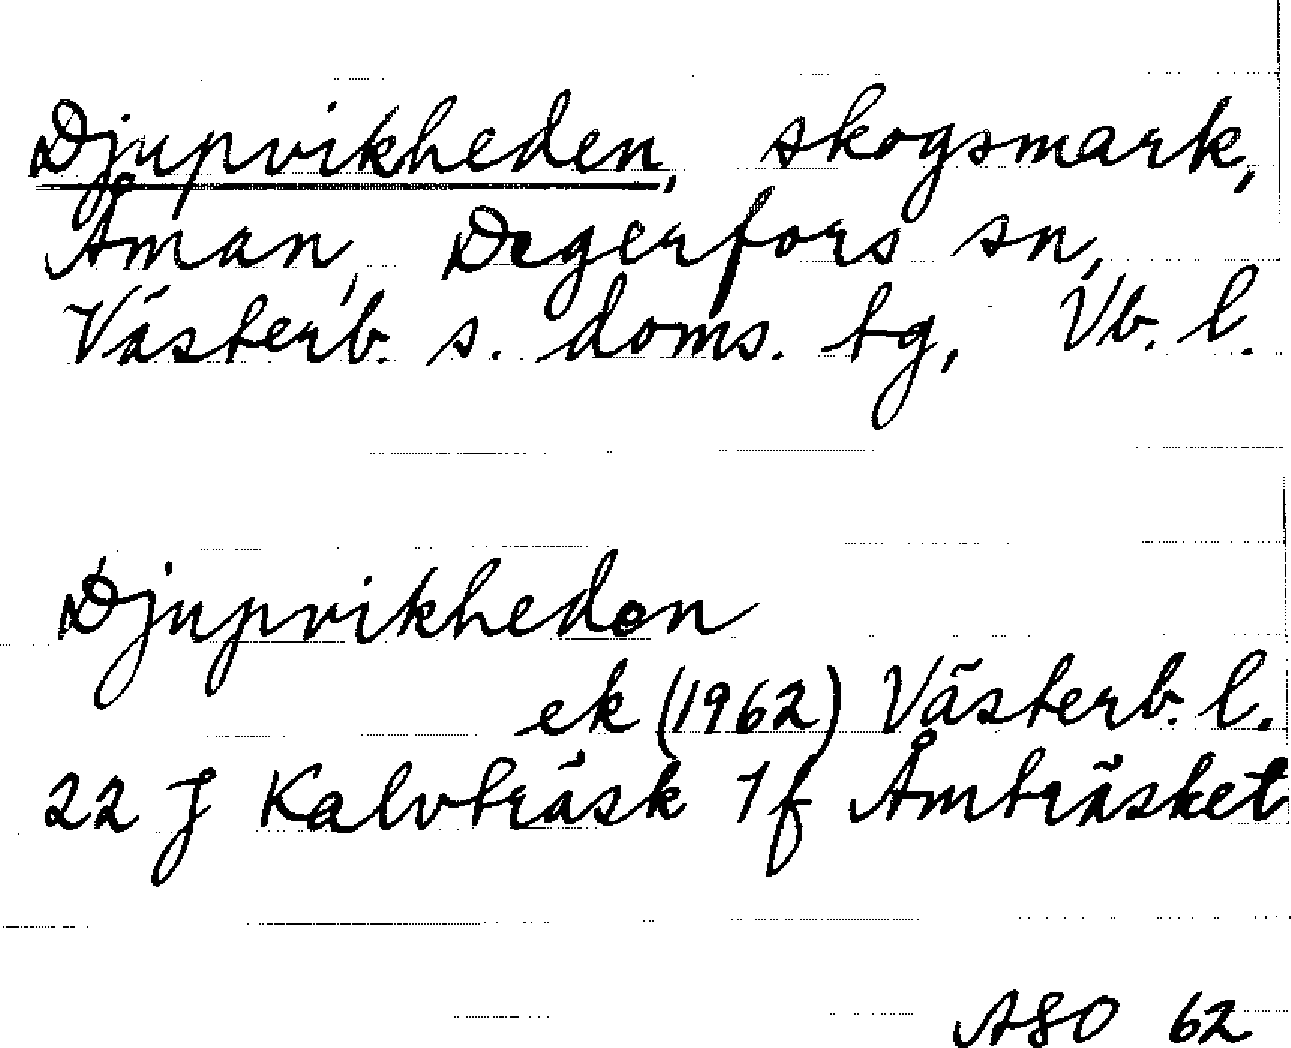 Djupvikheden, skogsmark,
Åman, Degerfors sn,
Västerb. s. doms. tg, Vb. l.
Djupvikheden
ek (1962) Västerb. l.
22 J Kalvträsk 7f Åmträsket
ASO 62